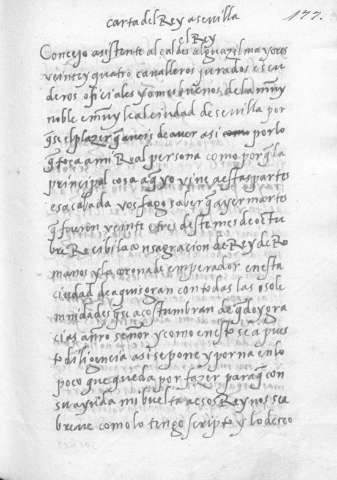 carta del Rey a sevilla
177.
el Rey
Concejo asistente alcaldes alguazil mayores
veinte y quatro caualleros jurados escu
deros oficiales y omes buenos de la muy
noble e muy leal ciudad de seuilla por
q̃ se el plazer q̃ aueis de auer asi por lo
q̃ toca a mi Real persona como por q̃ la
principal cosa a q̃ yo vine a estas partes
es acabada vos fago saber q̃ ayer martes
q̃ fueron veinte e tres deste mes de octu
bre Recibi la consagracion de Rey de Ro
manos y la corona de emperador en esta
ciudad de aquisgran con todas las sole
mnidades q̃ se acostumbran de q̃ doy gra
cias a nr̃o señor y como en esto sea pues
to diligencia asi se pone y porna en lo
poco que queda por fazer para q̃ con
su ayuda mi buelta a esos Reynos sea
breue como lo tengo scripto y lo deseo